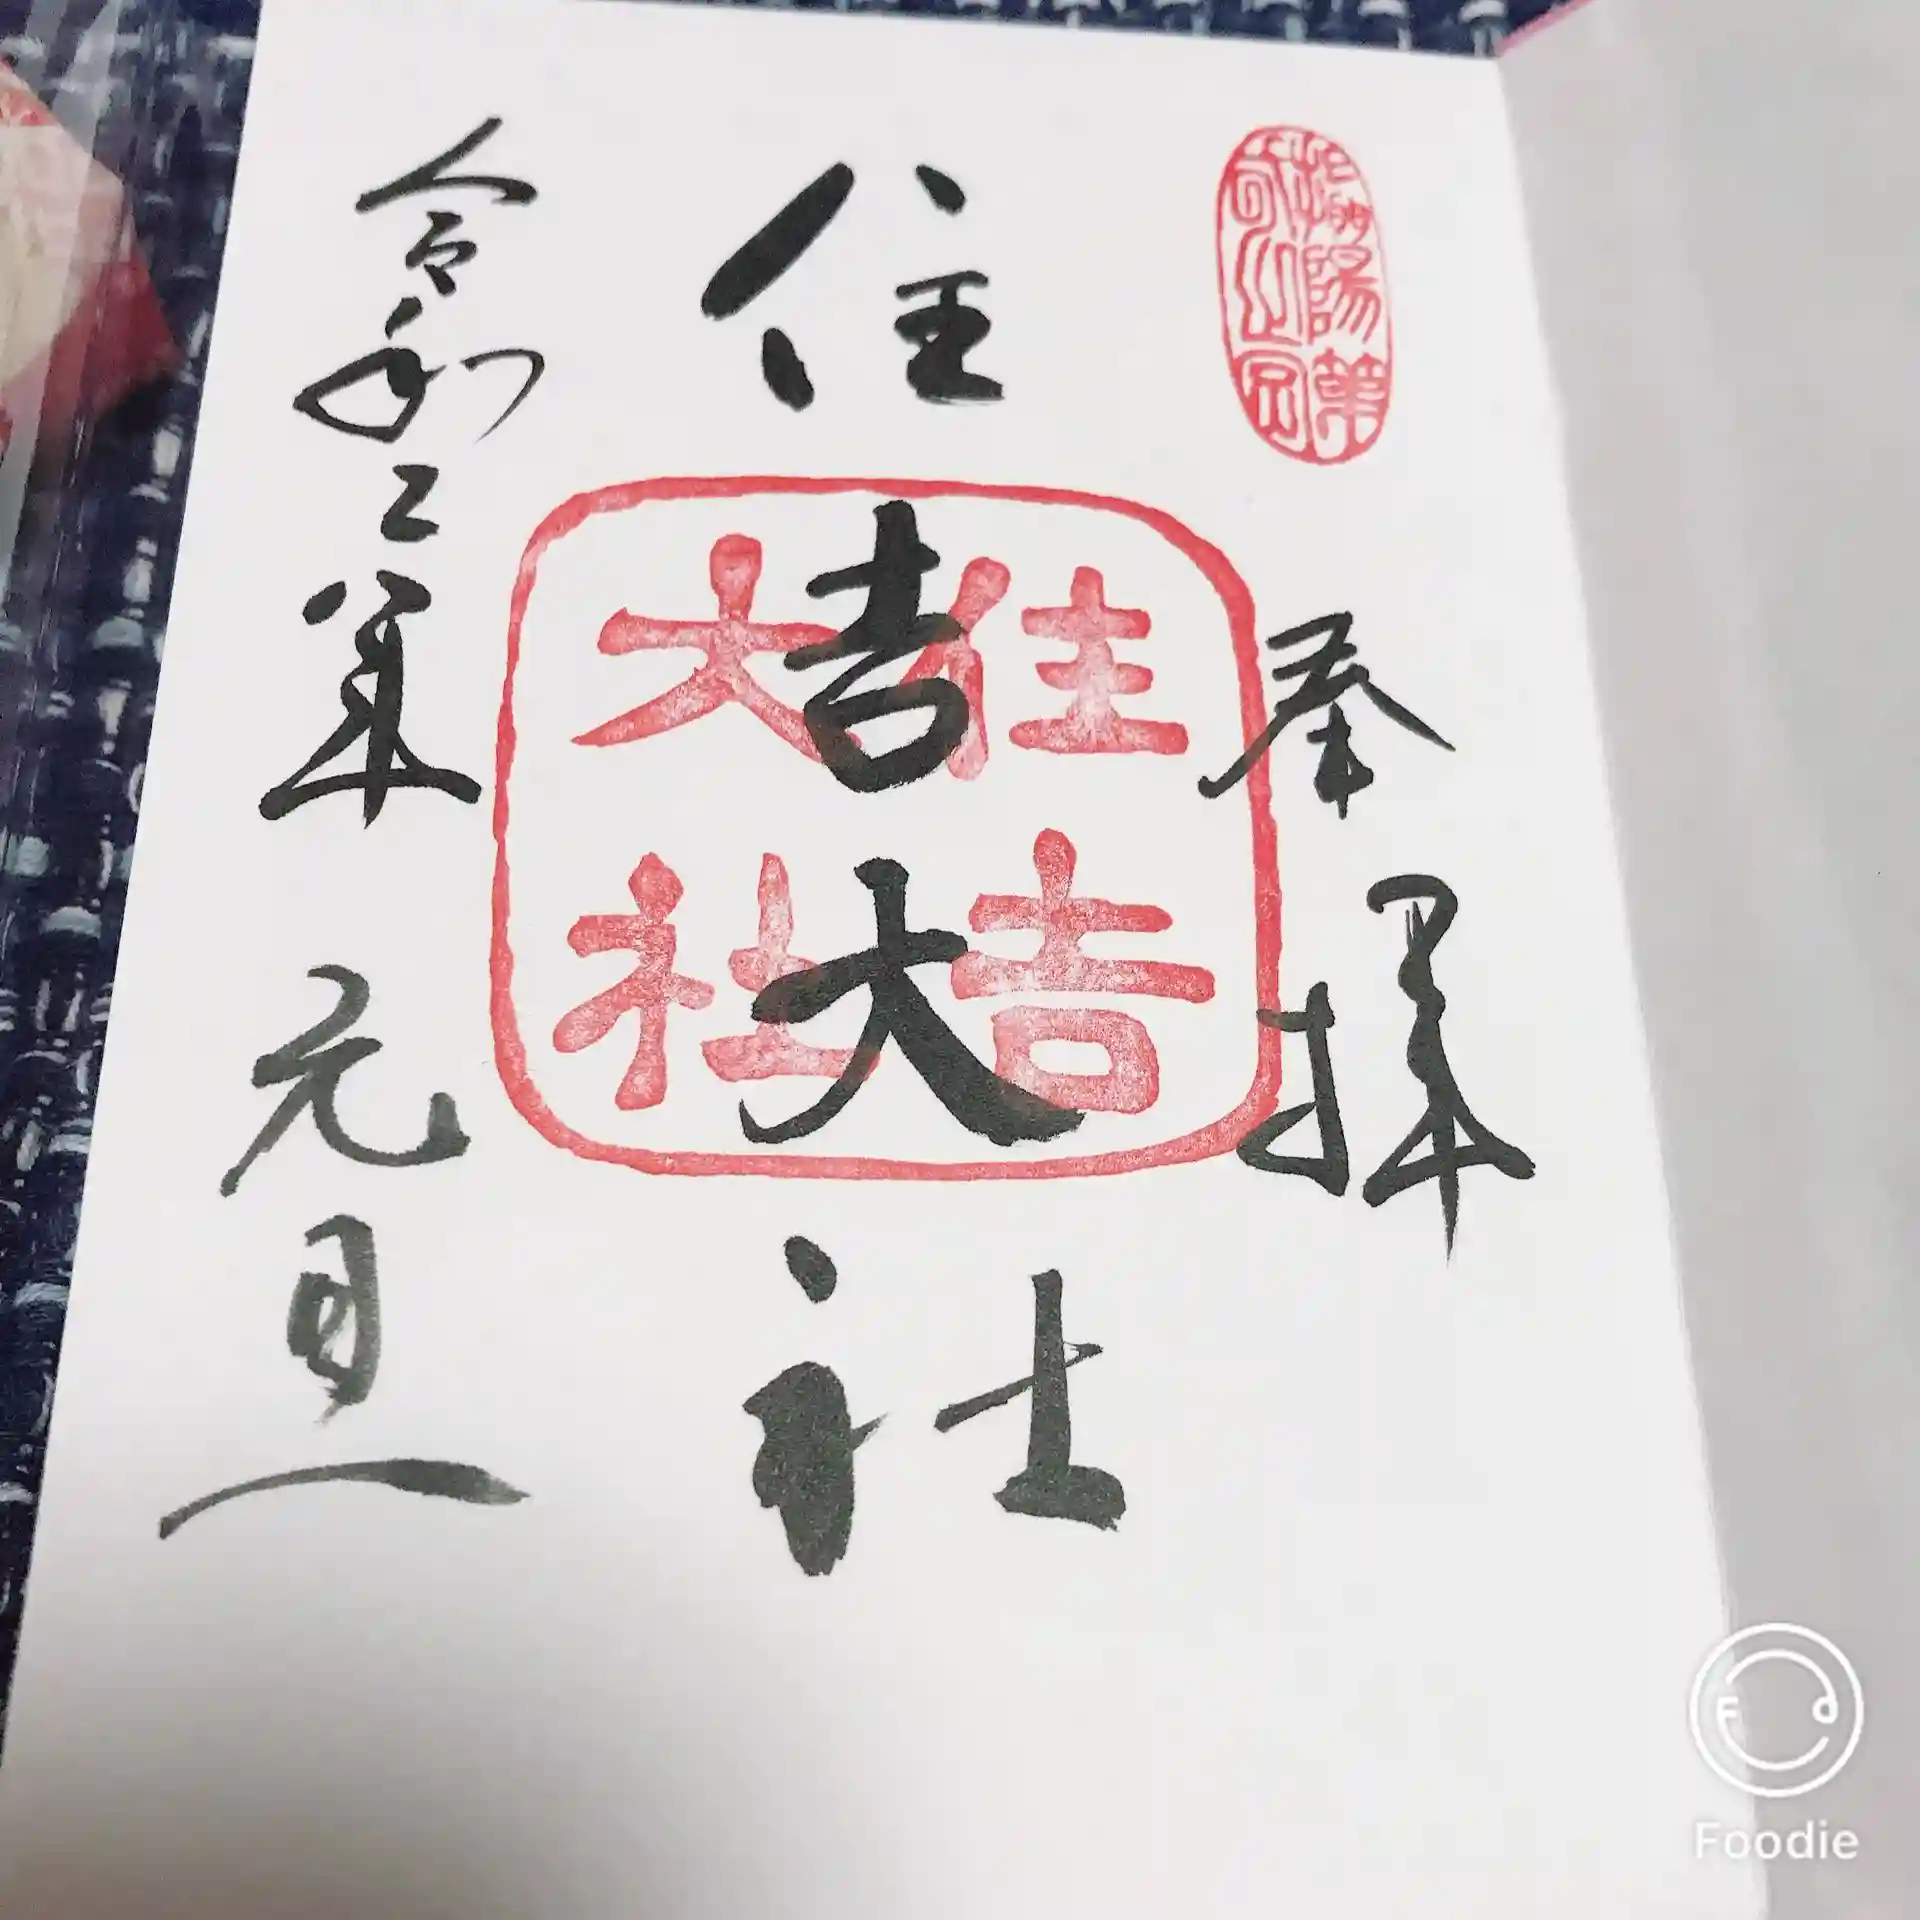 奉拝
住吉大社
住吉
大社
令和二年元旦
Foodie